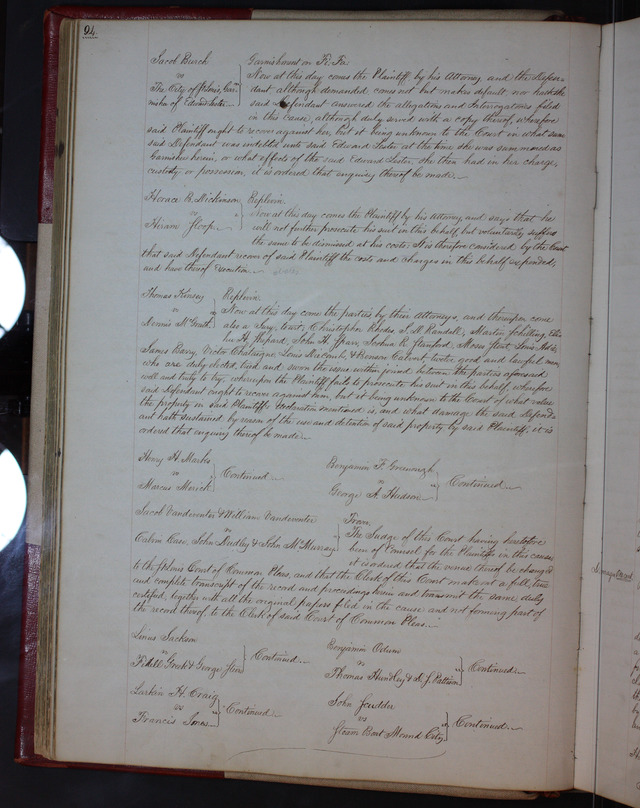 94
Jacob Burch
vs
The City of St Louis, Gar-
nishee of Edward Lester
Garnishment on Fi. Fa.
Now at this day comes the Plaintiff by his Attorney and the Defen-
dant although demanded comes not but makes default, nor hath the
said Defendant answered the allegations and Interrogatories filed
in this cause, although duly served with a copy thereof, wherefore
said Plaintiff ought to recover against her, but it being unknown to the Court in what sum
said Defendant was indebted unto said Edward Lester at the time she was summoned as
Garnishee herein, or what effects of the said Edward Lester, she then had in her charge,
custody or possession, it is ordered that enquiry thereof be made.
Horace R. Mickinson
vs
Hiram
Replevin.
Now at this day comes the Plaintiff by his Attorney and says that he
will not further prosecute his suit in this behalf, but voluntarily suffers
the same to be dismissed at his costs. It is therefore considered by the Court
that said Defendant recover of said Plaintiff the costs and charges in this behalf expended,
and have thereof Execution.
Thomas Kinsey
vs
Dennis McGrath
Replevin.
Now at this day come the parties by their Attorneys, and thereupon come
also a Jury, to wit, Christopher Rhodes, J. M. Randall, Martin Schilling,
H. Shepard, John H. Joshua R. Stanford, Moses Louis
James Barry, Victor Chataigne, Louis Macomb, & Benson Calvert twelve good and lawful men,
who are duly elected, tried and sworn the issue within joined between the parties aforesaid
well and truly to try, whereupon the Plaintiff fails to prosecute his suit in this behalf, wherefore
said Defendant ought to recover against him, but it being unknown to the Court of what value
the property in said Plaintiff's Declaration mentioned is, and what damage the said Defend-
ant hath sustained by reason of the use and detention of said property by said Plaintiff, it is
ordered that enquiry thereof be made.
Henry H. Marks
vs
Marcus Morick
Continued.
Benjamin F. Greenough
vs
George A. Hudson
Continued.
Jacob Vandeventer & William Vandeventer
vs
Calvin Case, John Dudley & John McMurray
The Judge of this Court having heretofore
been of Counsel for the Plaintiffs in this cause
it is ordered that the venue thereof be changed
to the St Louis Court of Common Pleas, and that the Clerk of this Court make out a full, true
and complete transcript of the record and proceedings herein and transmit the same duly
certified, together with all the original papers filed in the cause and not forming part of
the record thereof to the Clerk of said Court of Common Pleas.
Linus Jackson
vs
Fidell & George
Continued.
Benjamin Odum
vs
Thomas Hundley & A. J. Pattison
Continued.
Larkin H. Craig
vs
Francis Jones
Continued.
John Scudder
vs
Steam Boat Mound City
Continued.